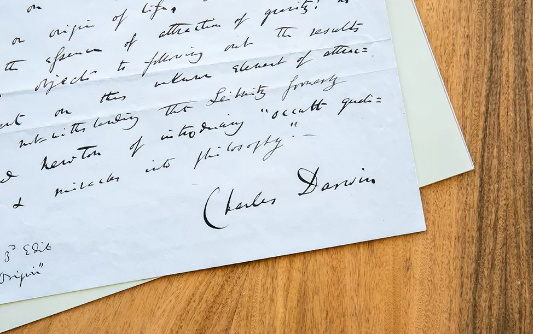 on
on origin of life,
the essence of attraction of gravity! No
objects to following out the results
on this unknown element of attrac=
notwithstanding that Leibnitz formerly
Newton of introducing "occult quali=
& miracles into philosophy."—
Charles Darwin
3ᵈ Edit
Origin"